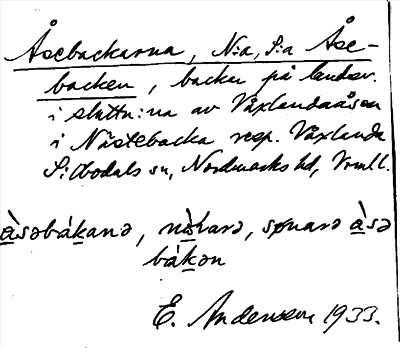 Åsebackarna, N:a, S:a Åse-
backen, backar på landsv.
i sluttn:na av Växlandaåsen
i Nästebacka resp. Växlanda
S:i bodals sn, Nordmarks hd, Vrml.
àsəbákanə, nò̱rarə, sønarə àsə
bákən
E. Andersson 1933.